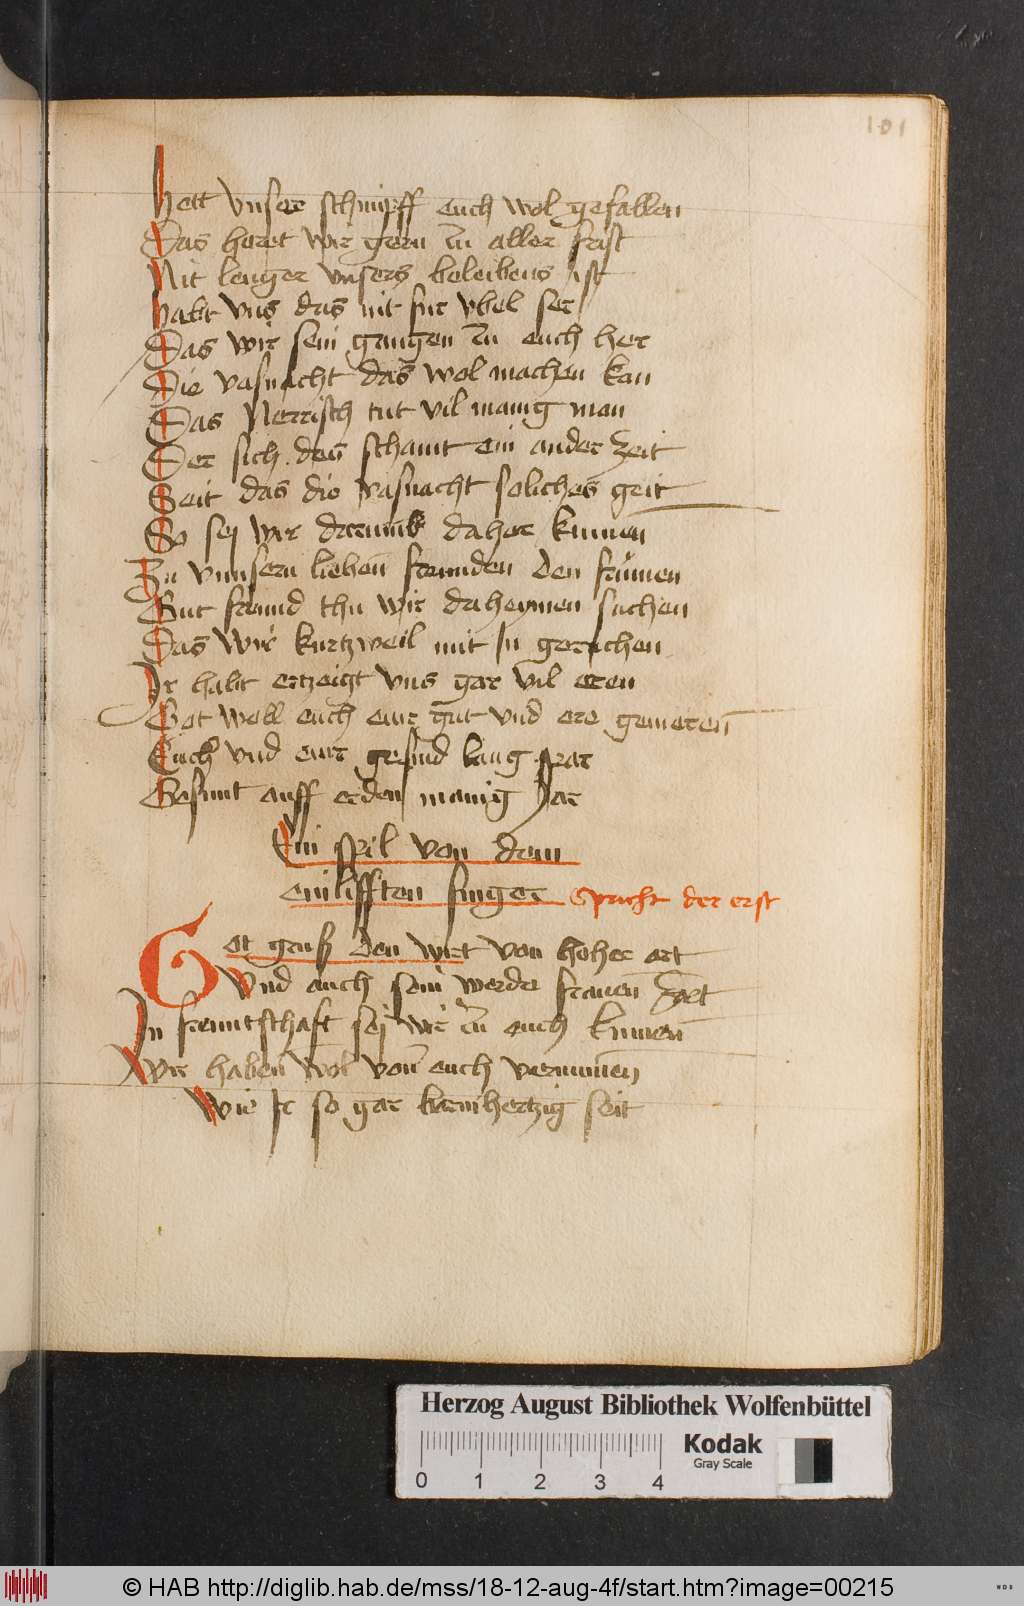 101
hett vnser schimpff euch wol gefallen
Das horet wir gern zu aller frist
Nit lenger vnsers beleibens ist
habt vns das nit fur vbel ser
Das wir sein gangen zu euch her
Die vasnacht das wol machen kan
Das Nerrisch tut vil manig man
Der sich des schamt ein ander zeit
Seit das die vasnacht soliches geit
So sej wir darumb daher kumen
Zu vnnsern liebenn freunden den frumen
Gut freund thu wir daheymen suchen
Das wir kurtzweil mit In geruchen
Ir habt ertzeigt vns gar vil eren
Got woll euch eur gut vnd ere gemerenn
Euch vnd eur gesind lang spar
Gesunt auff erden manig Jar
Ein spil von dem
einlifften finger Spricht der erst
Got gruß den wirt von hoher art
Vnd auch sein werde frauen zart
In freuntschaft sej wir zu euch kumen
Wir habenn wol vonn euch vernumen
Wie Ir so gar barmhertzig seit
Herzog August Bibliothek Wolfenbüttel
Kodak
Gray Scale
0 1 2 3 4
© HAB http://diglib.hab.de/mss/18-12-aug-4f/start.htm?image=00215